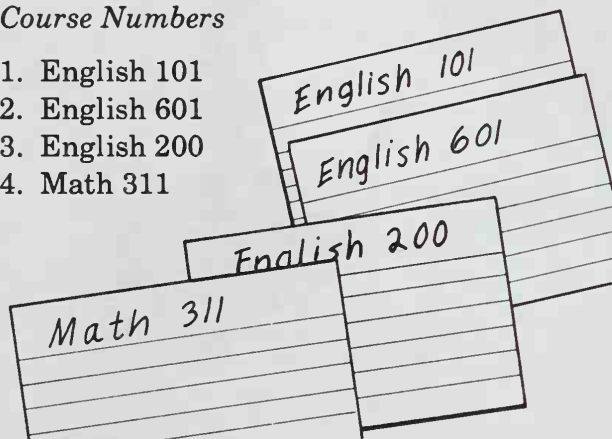 Course Numbers
1. English 101
2. English 601
3. English 200
4. Math 311
English 101
English 601
English 200
Math 311